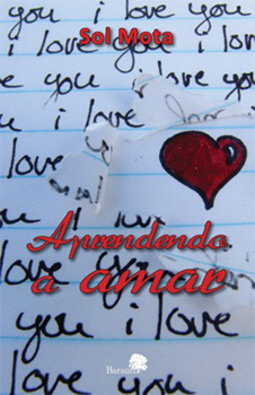 you i love you
Sol Mota
i love i love
you you i love
you i love
love i love
you
i lov
Aprendendo
love you
a amar
you i love
Baraúna
love you i